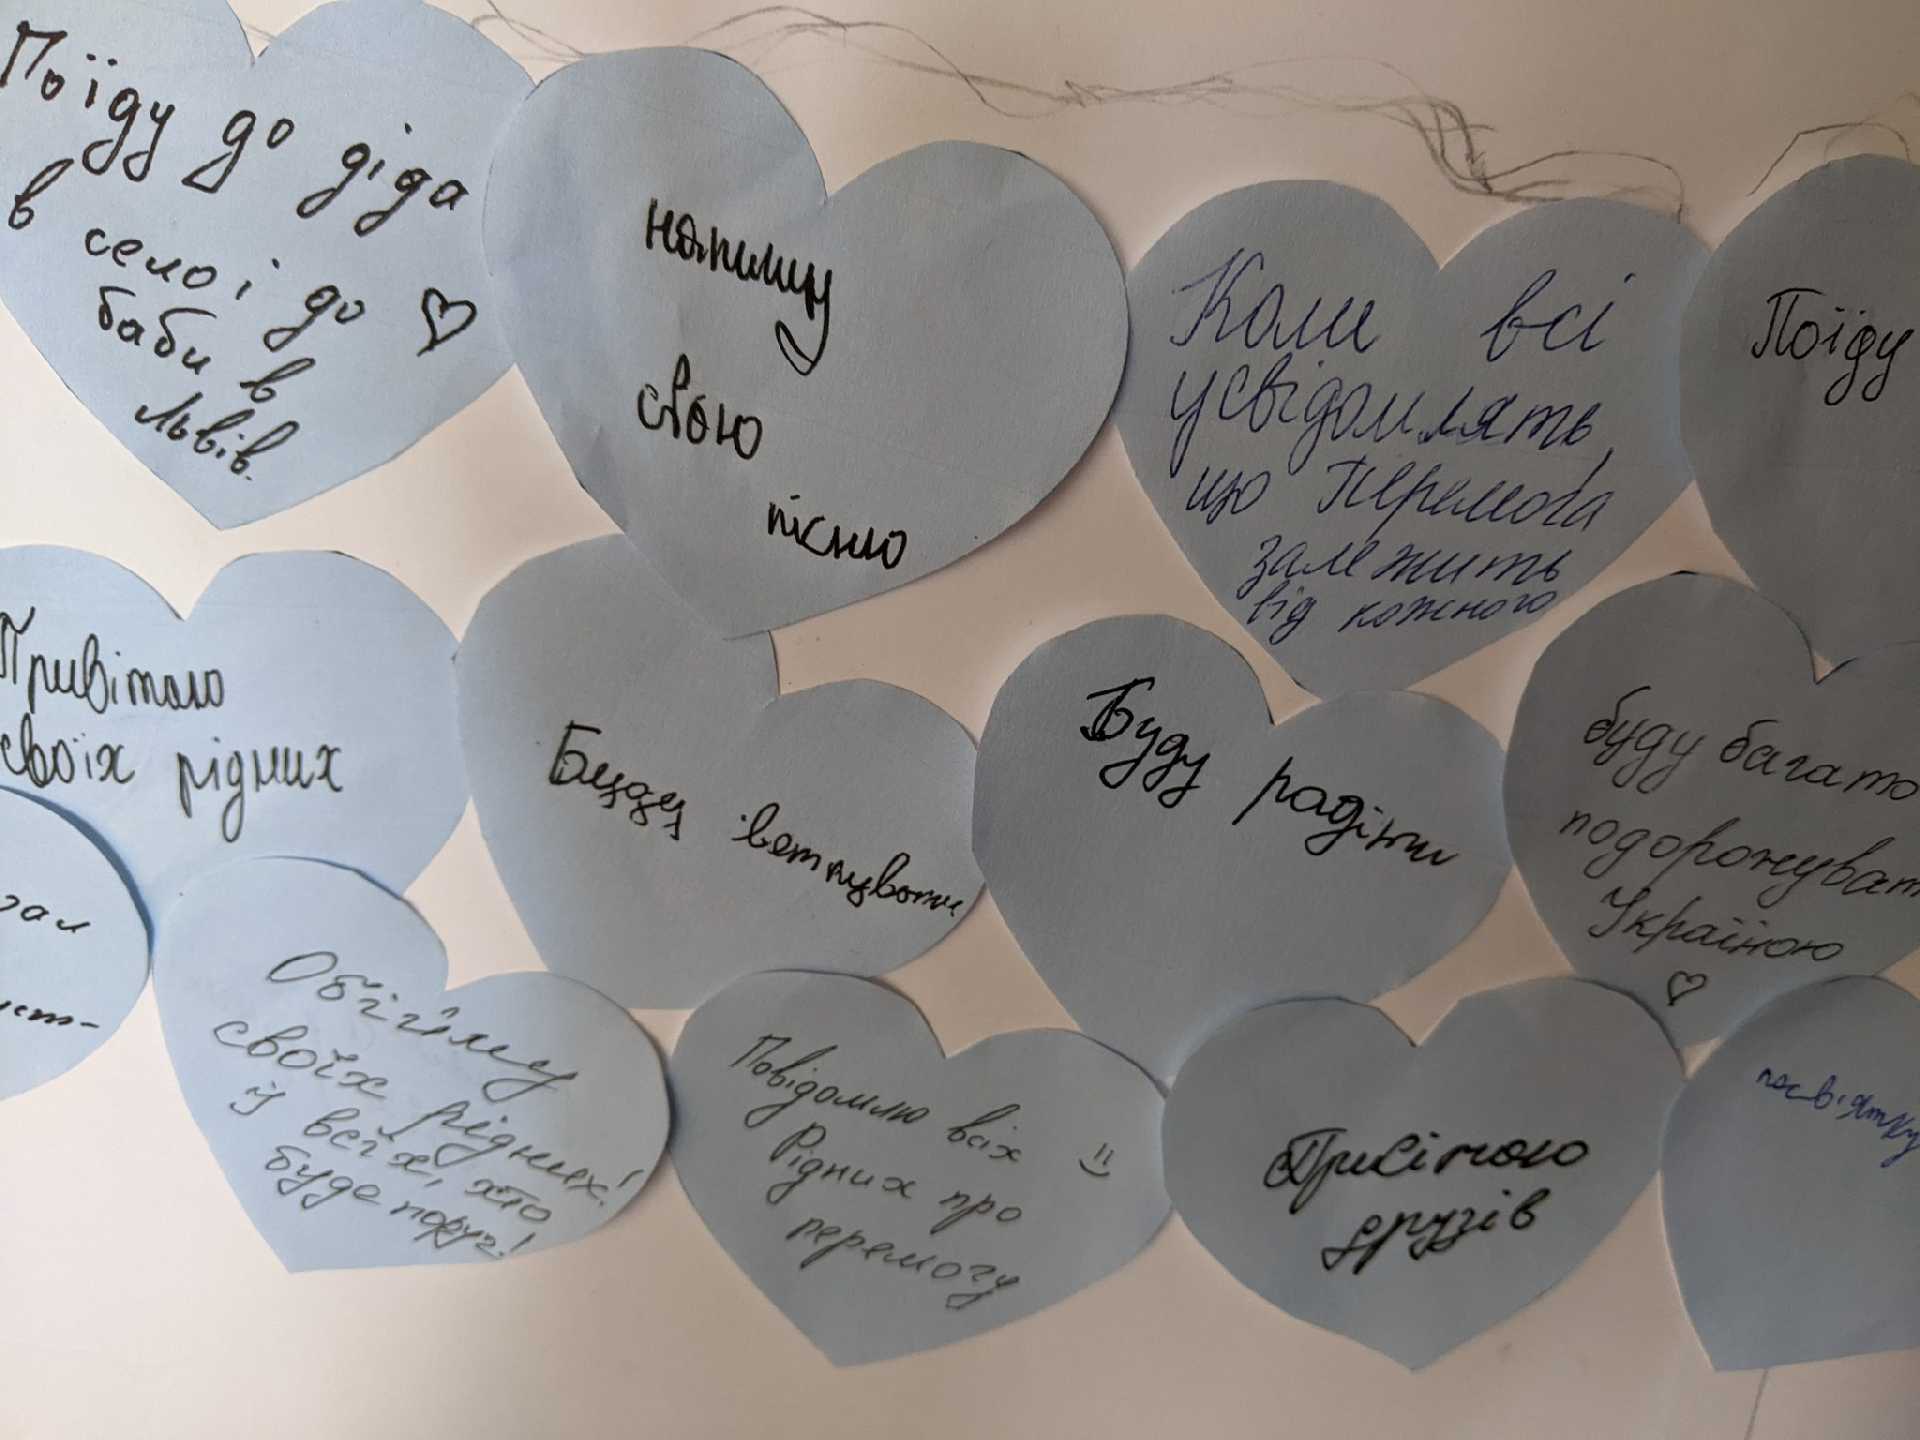 Поїду до діда
в село і до
баби в
Львів.
напишу
свою
пісню
Коли всі
усвідомлять,
що Перемога
залежить
від кожного
Поїду
Привітаю
своїх рідних
Буду
Буду радіти
буду багато
подорожуват
Україною
Обійму
своїх рідних!
Й всіх, хто
буде поруч!
Повідомлю всіх
Рідних про
перемогу
Привітаю
друзів